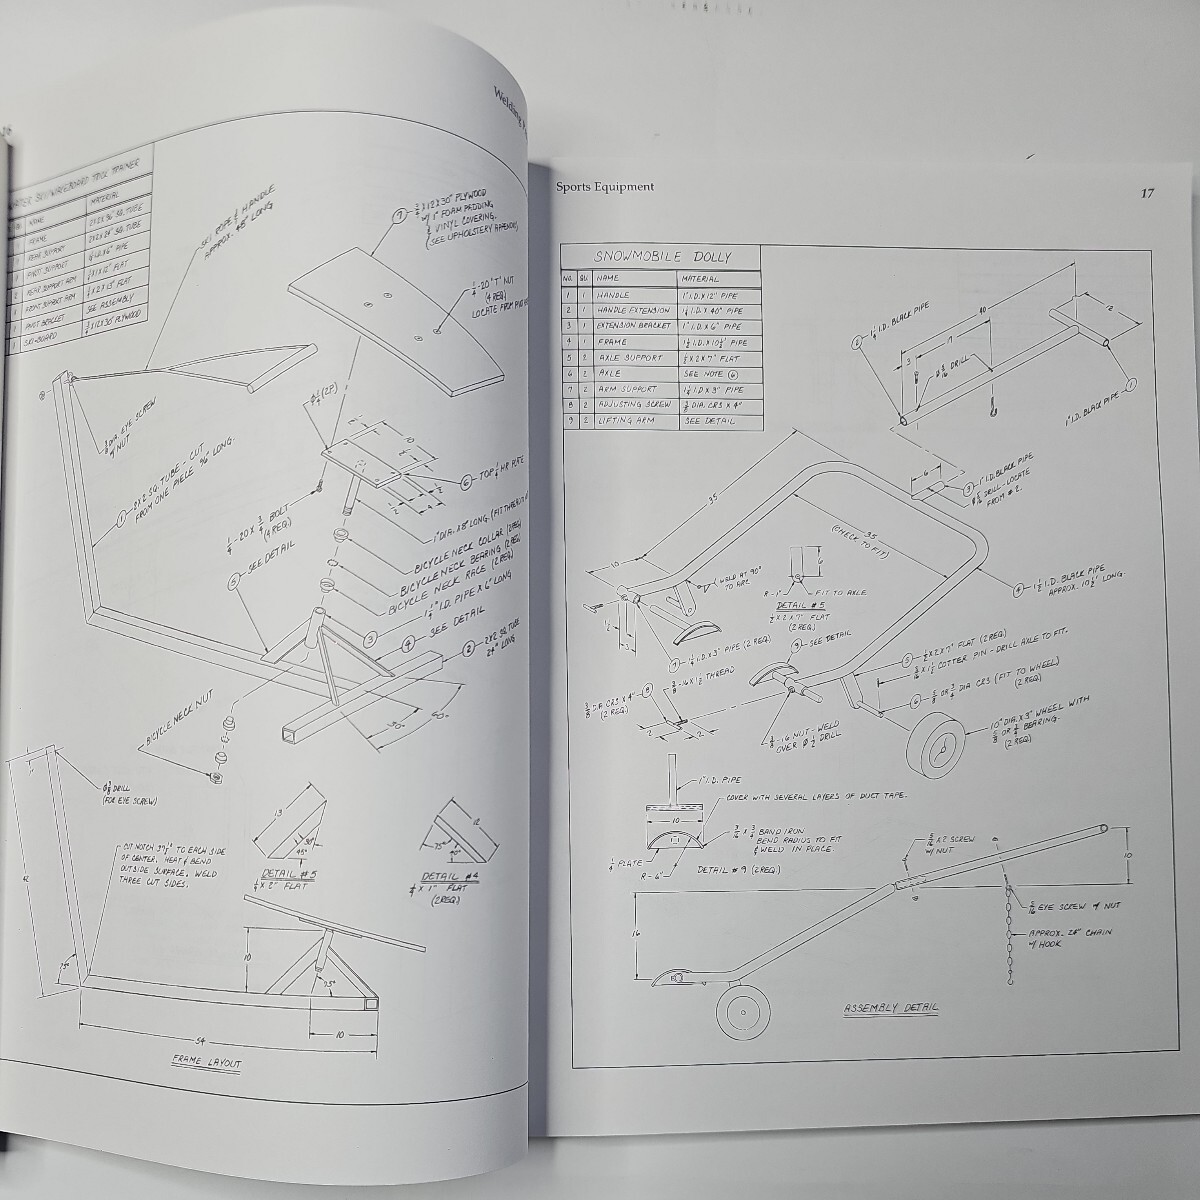 Welding
WATER SKI/WAKEBOARD TRICK TRAINER
NAME
MATERIAL
FRAME
2X2X96" SQ. TUBE
REAR SUPPORT
2X2X24" SQ. TUBE
PIVOT SUPPORT
REAR SUPPORT ARM
FRONT SUPPORT ARM
PIVOT BRACKET
SEE ASSEMBLY
SKI-BOARD
3/4 X12X30" PLYWOOD
SKI ROPE & HANDLE
APPROX. 45" LONG
7
3/4 X12X30" PLYWOOD
W/ 1" FOAM PADDING
& VINYL COVERING.
(SEE UPHOLSTERY APPENDIX)
1/4-20 "T" NUT
(4 REQ)
LOCATE FROM
3/8 DIA. EYE SCREW
W/ NUT
1
2X2 SQ. TUBE - CUT
FROM ONE PIECE 96" LONG.
Ø 1/4 (2P)
10
6
TOP 1/4 HR PLATE
1/4-20 X 3/4 BOLT
(4 REQ.)
5
SEE DETAIL
1" DIA. X 8" LONG.
BICYCLE NECK COLLAR (2 REQ)
BICYCLE NECK BEARING (2 REQ)
BICYCLE NECK RACE (2 REQ)
3
1 1/4" I.D. PIPE X 6" LONG
4
SEE DETAIL
2
2X2 SQ. TUBE
24" LONG
30°
60°
BICYCLE NECK NUT
Ø 3/8 DRILL
(FOR EYE SCREW)
CUT NOTCH 37 1/2° TO EACH SIDE
OF CENTER. HEAT & BEND
OUTSIDE SURFACE. WELD
THREE CUT SIDES.
42
75°
13
30°
45°
DETAIL #5
1/4 X 2" FLAT
12
75°
DETAIL #4
1/4 X 1" FLAT
(2 REQ.)
10
75°
10
54
FRAME LAYOUT
Sports Equipment
17
SNOWMOBILE DOLLY
NO. QU. NAME MATERIAL
1 1 HANDLE 1" I.D. X 12" PIPE
2 1 HANDLE EXTENSION 1 1/4 I.D. X 40" PIPE
3 1 EXTENSION BRACKET 1" I.D. X 6" PIPE
4 1 FRAME 1 1/2 I.D. X 10 1/2' PIPE
5 2 AXLE SUPPORT 1/2 X 2 X 7" FLAT
6 2 AXLE SEE NOTE 6
7 2 ARM SUPPORT 1 1/4 I.D. X 3" PIPE
8 2 ADJUSTING SCREW 3/8 DIA. CRS X 4"
9 2 LIFTING ARM SEE DETAIL
2
1 1/4 I.D. BLACK PIPE
40
12
7
3
Ø 5/16 DRILL
1" I.D. BLACK PIPE
1
6
3
1" I.D. BLACK PIPE
Ø 5/16 DRILL - LOCATE
FROM #2.
35
35
(CHECK TO FIT)
10
WELD AT 90°
TO ARC
6
R-1"
FIT TO AXLE
DETAIL #5
1/2 X 2 X 7" FLAT
(2 REQ.)
4
1 1/2 I.D. BLACK PIPE
APPROX. 10 1/2' LONG.
1/2
3
9
SEE DETAIL
7
1 1/4 I.D. X 3" PIPE (2 REQ.)
3/8-16 X 1 1/2 THREAD
3/8 DIA CRS X 4"
8
(2 REQ.)
2
2
5
1/2 X 2 X 7" FLAT (2 REQ.)
3/16 X 1 1/2 COTTER PIN - DRILL AXLE TO FIT.
6
5/8 OR 3/4 DIA CRS (FIT TO WHEEL)
(2 REQ.)
3/8-16 NUT - WELD
OVER Ø 1/2 DRILL
10" DIA. X 3" WHEEL WITH
5/8 OR 3/4 BEARING.
(2 REQ.)
1" I.D. PIPE
COVER WITH SEVERAL LAYERS OF DUCT TAPE.
10
3/16 X 3/4 BAND IRON
BEND RADIUS TO FIT
& WELD IN PLACE
1/4 PLATE
R-6"
DETAIL #9 (2 REQ.)
5/16 X 2 SCREW
W/ NUT
10
5/16 EYE SCREW W/ NUT
16
APPROX. 24" CHAIN
W/ HOOK
ASSEMBLY DETAIL